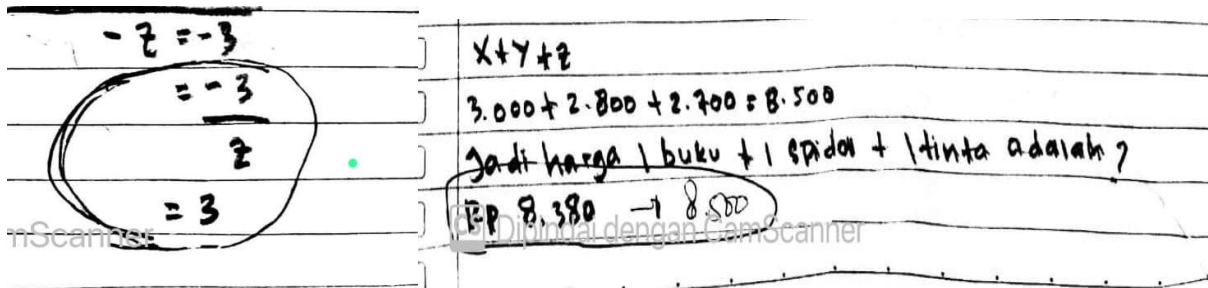 - z = -3
= - 3
z
= 3
nScanner
X+Y+z
3.000 + 2.800 + 2.700 = 8.500
Jadi harga 1 buku + 1 spidol + 1 tinta adalah ?
Rp 8.380 → 8.500
Dipindai dengan CamScanner